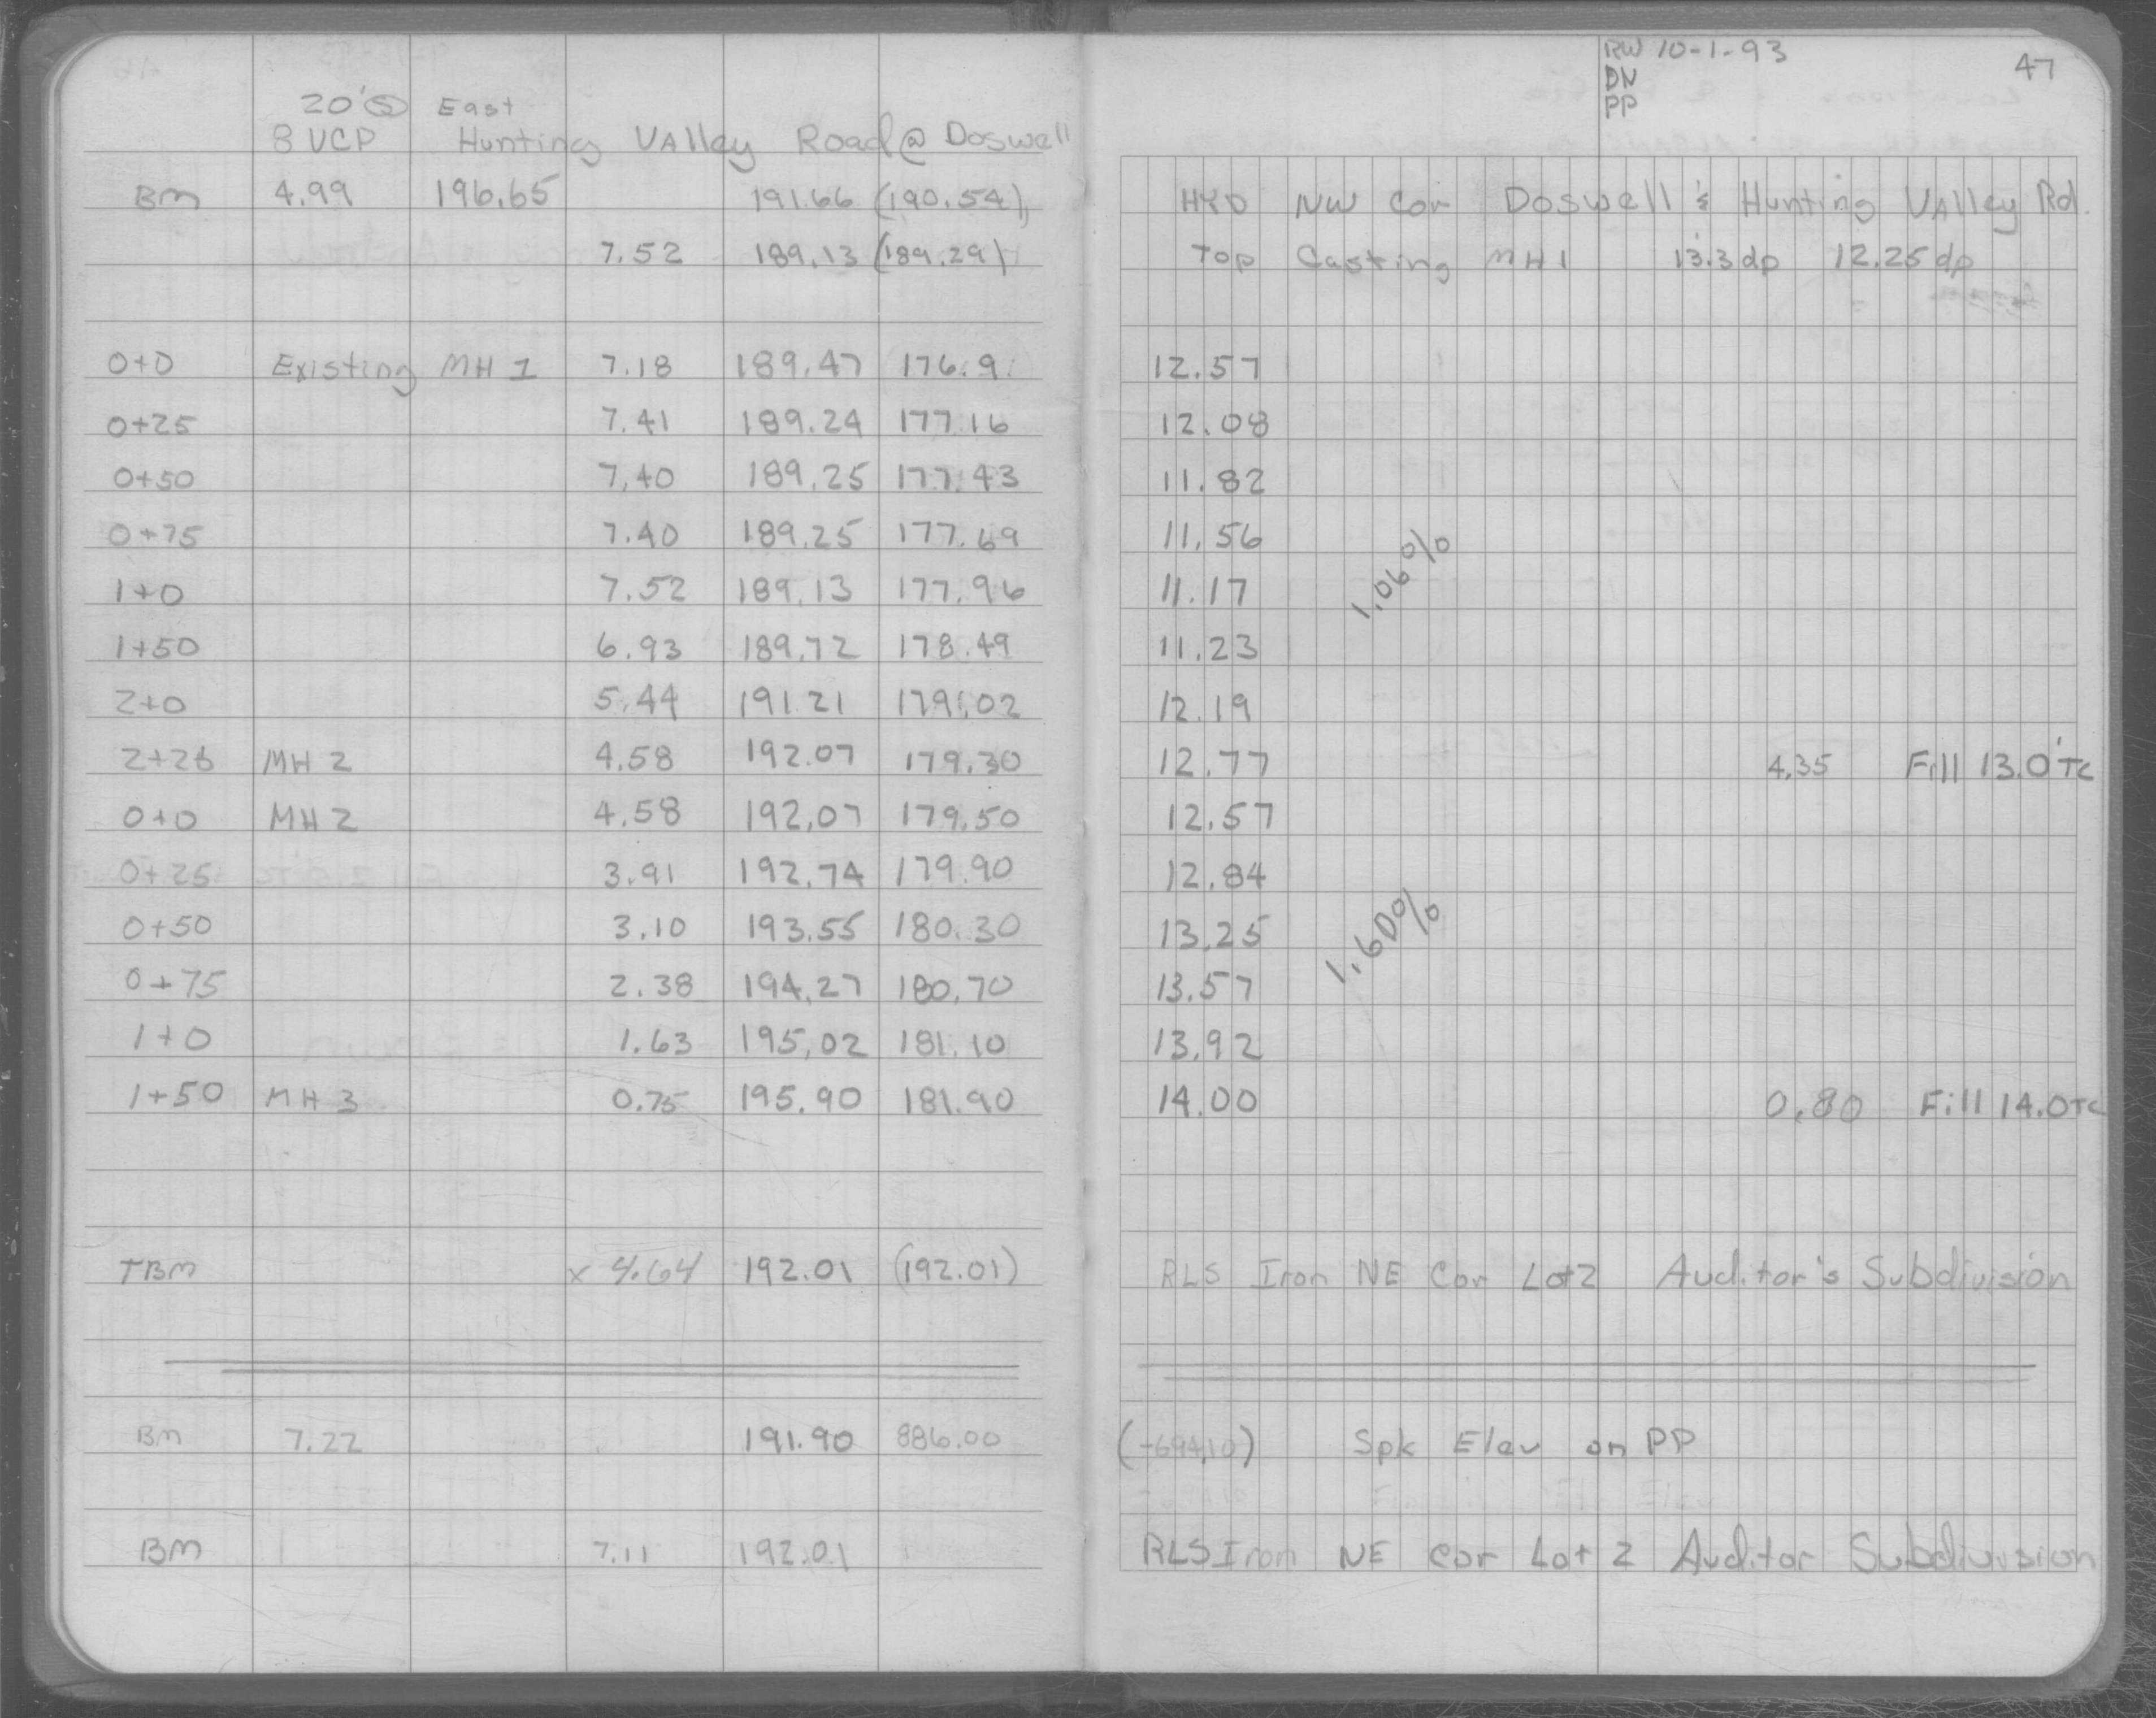 RW 10-1-93
DN
PP
47
20' Ⓢ East
8 VCP Hunting Valley Road @ Doswell
BM 4.99 196.65 191.66 (190.54) HYD NW Cor Doswell & Hunting Valley Rd.
7.52 189.13 (189.29) Top Casting MH 1 13.3 dp 12.25 dp
0+0 Existing MH 1 7.18 189.47 176.9 12.57
0+25 7.41 189.24 177.16 12.08
0+50 7.40 189.25 177.43 11.82
0+75 7.40 189.25 177.69 11.56
1.06%
1+0 7.52 189.13 177.96 11.17
1+50 6.93 189.72 178.49 11.23
2+0 5.44 191.21 179.02 12.19
2+26 MH 2 4.58 192.07 179.30 12.77 4.35 Fill 13.0' TC
0+0 MH 2 4.58 192.07 179.50 12.57
0+25 3.91 192.74 179.90 12.84
0+50 3.10 193.55 180.30 13.25
1.60%
0+75 2.38 194.27 180.70 13.57
1+0 1.63 195.02 181.10 13.92
1+50 MH 3 0.75 195.90 181.90 14.00 0.80 Fill 14.0 TC
TBM x 4.64 192.01 (192.01) RLS Iron NE Cor Lot 2 Auditor's Subdivision
BM 7.22 191.90 886.00 (-694.10) Spk Elev on PP
BM 7.11 192.01 RLS Iron NE Cor Lot 2 Auditor Subdivision